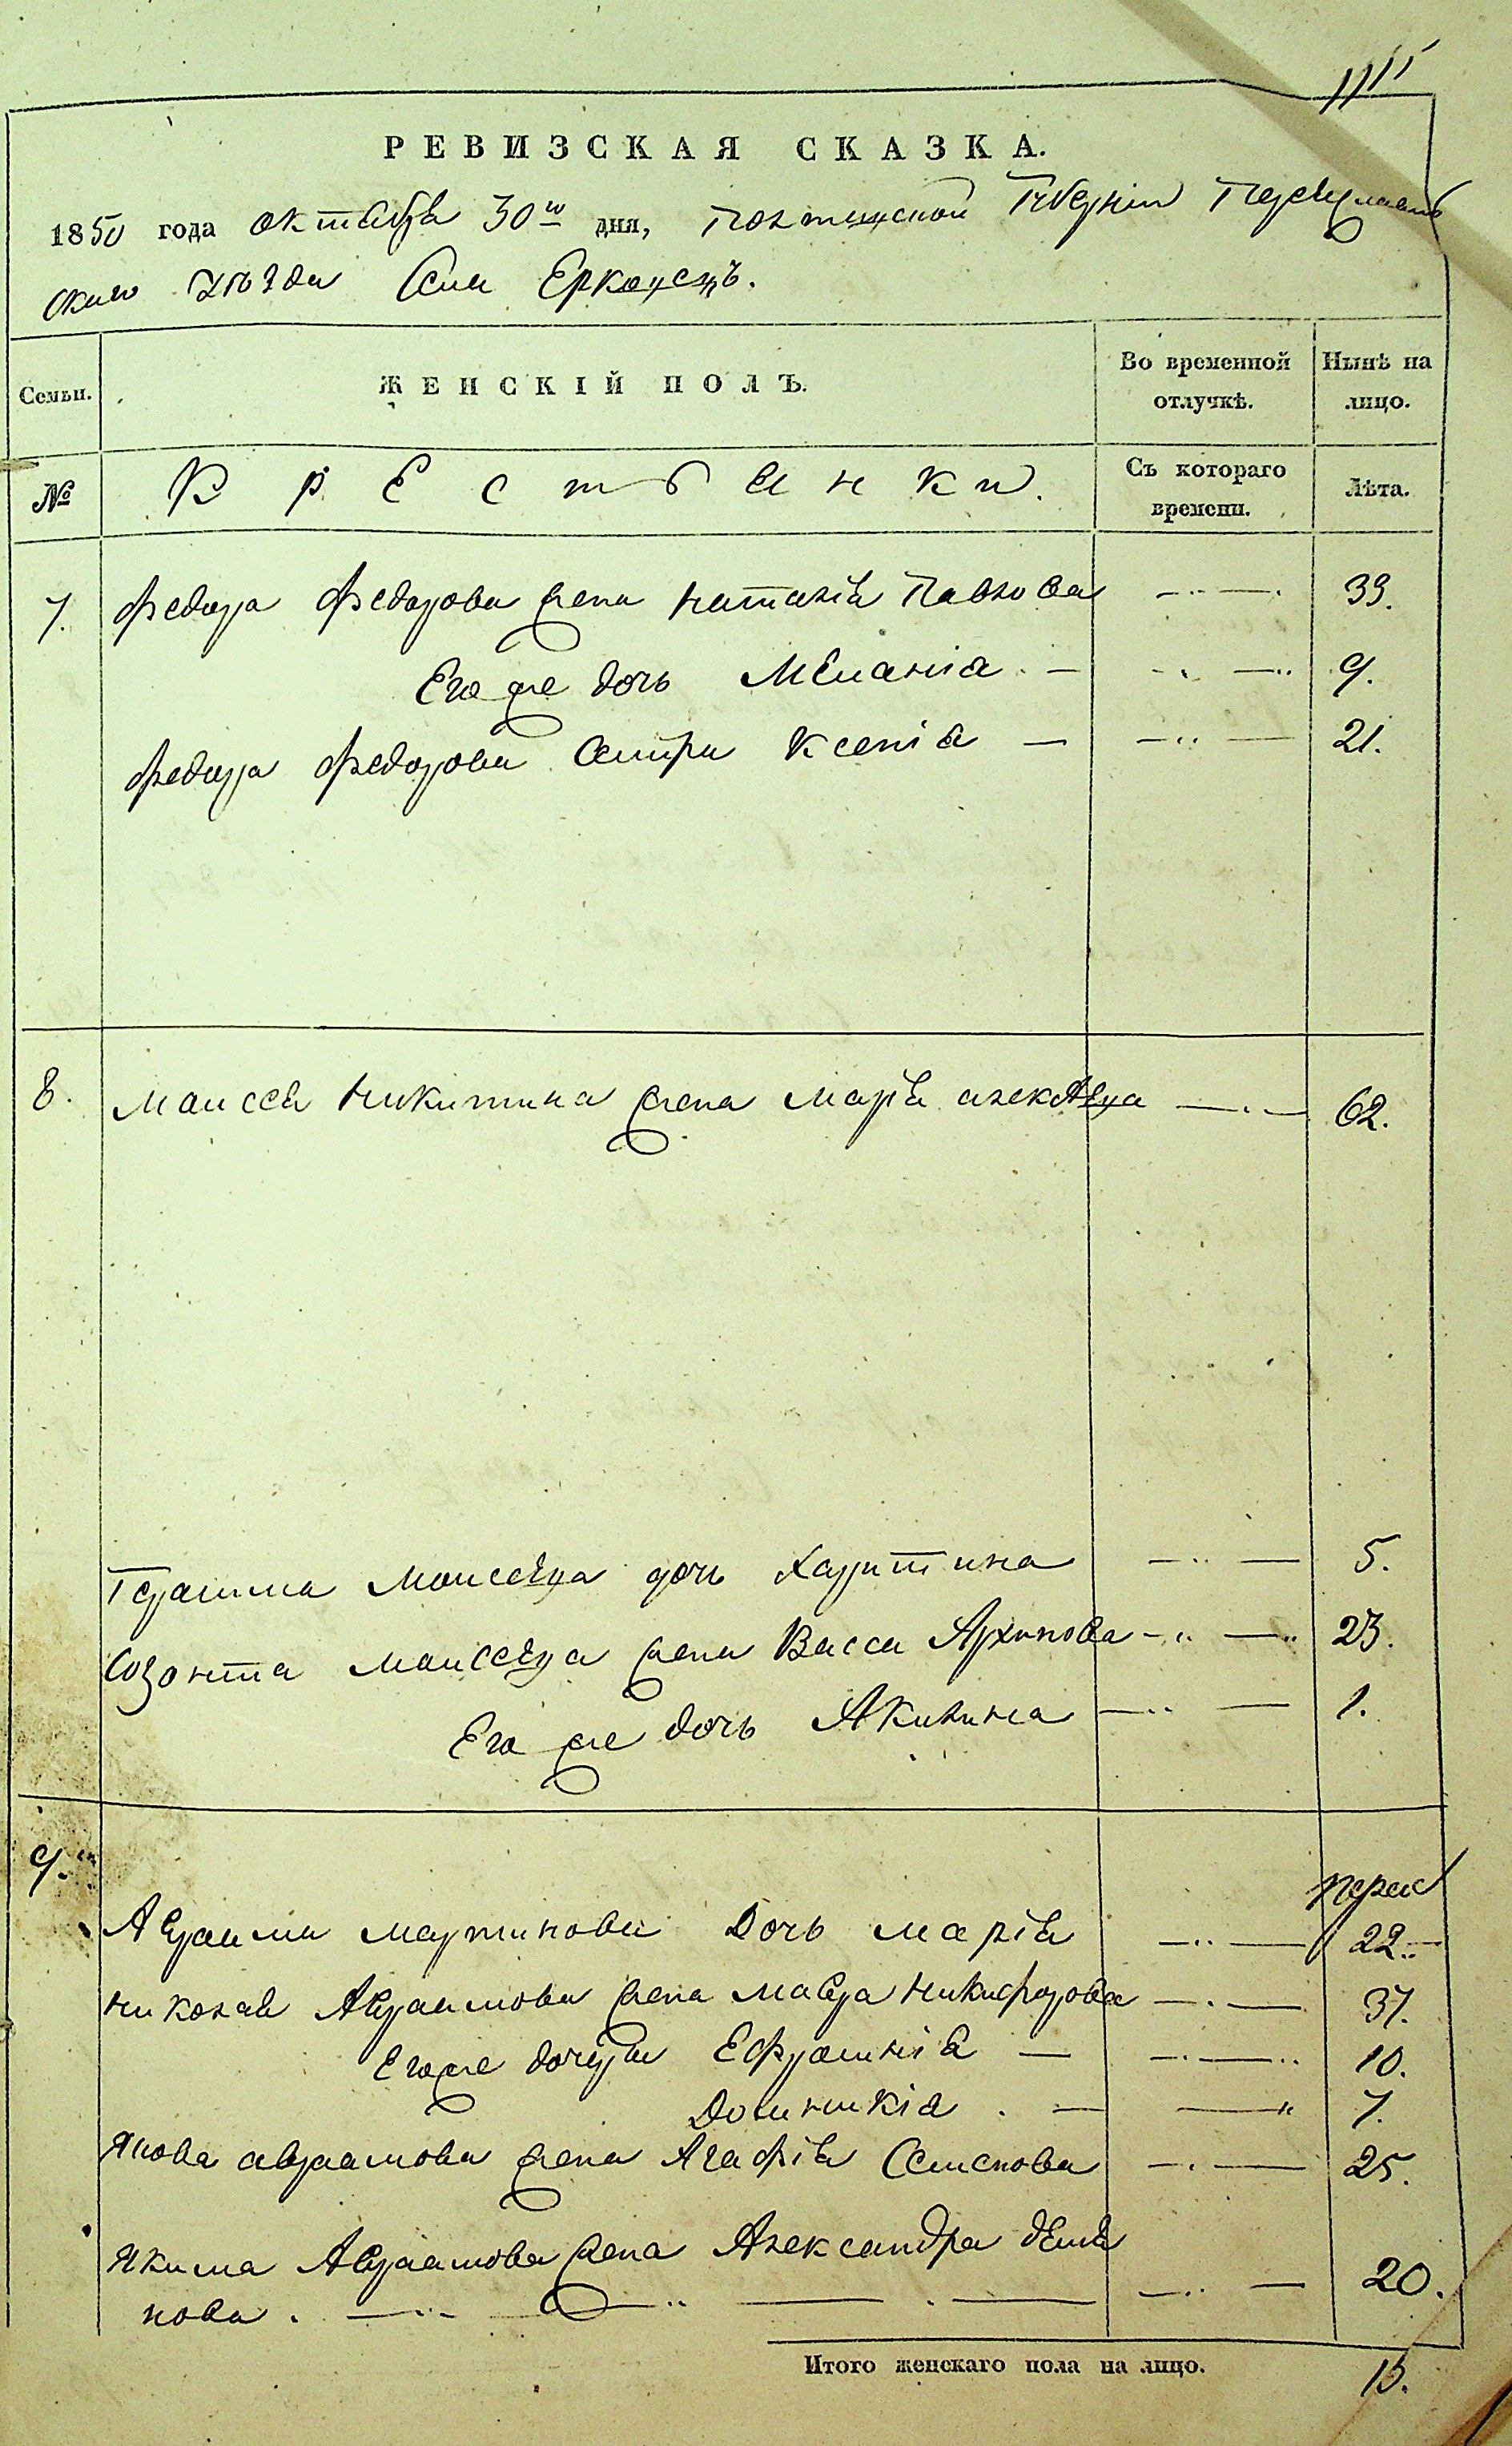 РЕВИЗСКАЯ СКАЗКА.
1850 года октября 30го дня, Полтавской Губерніи Переяслав
скаго уѣзда Села Ерковецъ.
Семьи. ЖЕНСКІЙ ПОЛЪ. Во временной отлучкѣ. Нынѣ на лицо.
№ Крестьянки. Съ котораго времени. Лѣта.
7. Федора Федорова жена Наталія Павлова 33.
Его же дочь Меланія 9.
Федора Федорова сестра Ксенія 21.
8. Моисея Никитина жена Марія алексѣева 62.
Герасима Моисеева дочь Харитина 5.
Созонта Моисеева жена Васса Архипова 23.
Его же дочь Акилина 1.
9.
Авраама Мартинова Дочь марія 22
Николая Авраамова жена Мавра Никифорова 37.
Его же дочери Ефросинія 10.
Домникіа 7.
Якова авраамова жена Агафія Семенова 25.
Якима Авраамова жена Александра демя
нова. 20.
Итого женскаго пола на лицо. 13.